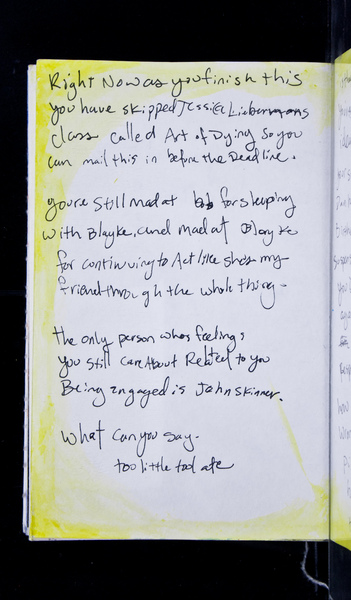 Right Now as you finish this
you have skipped Jessica Liebermans
class called Art of Dying so you
can mail this in before the Deadline.
you're still mad at for sleeping
with Blayke, and mad at Blayke
for continuing to Act like she's my
friend through the whole thing-
the only person whos feelings
you still care About Related to you
Being engaged is John Skinner.
What can you say-
too little too late